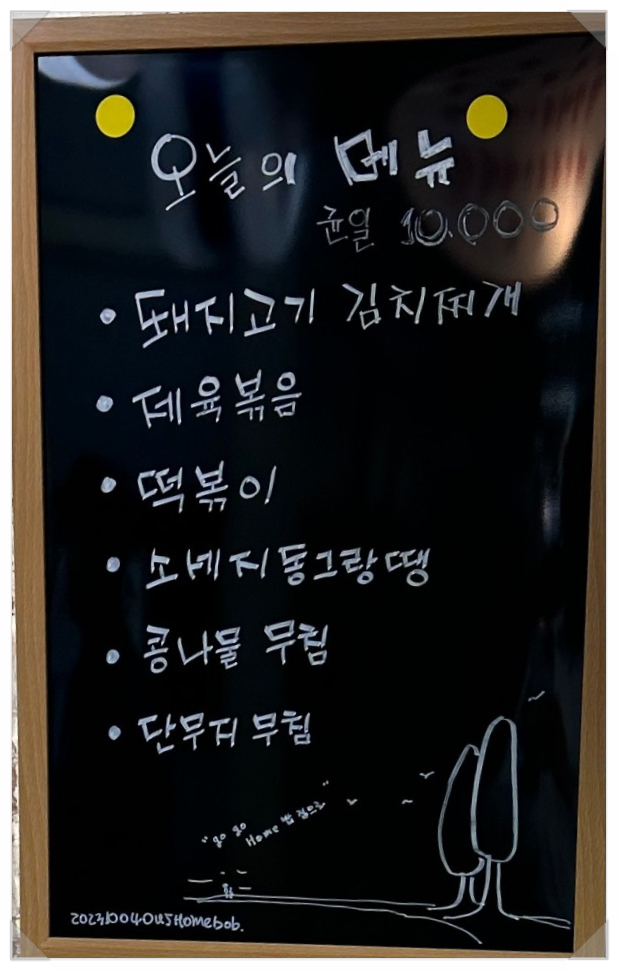 오늘의 메뉴
균일 10.000
• 돼지고기 김치찌개
• 제육볶음
• 떡볶이
• 소세지동그랑땡
• 콩나물 무침
• 단무지 무침
"go go
Home 밥 집으로"
20231004045Homebob.